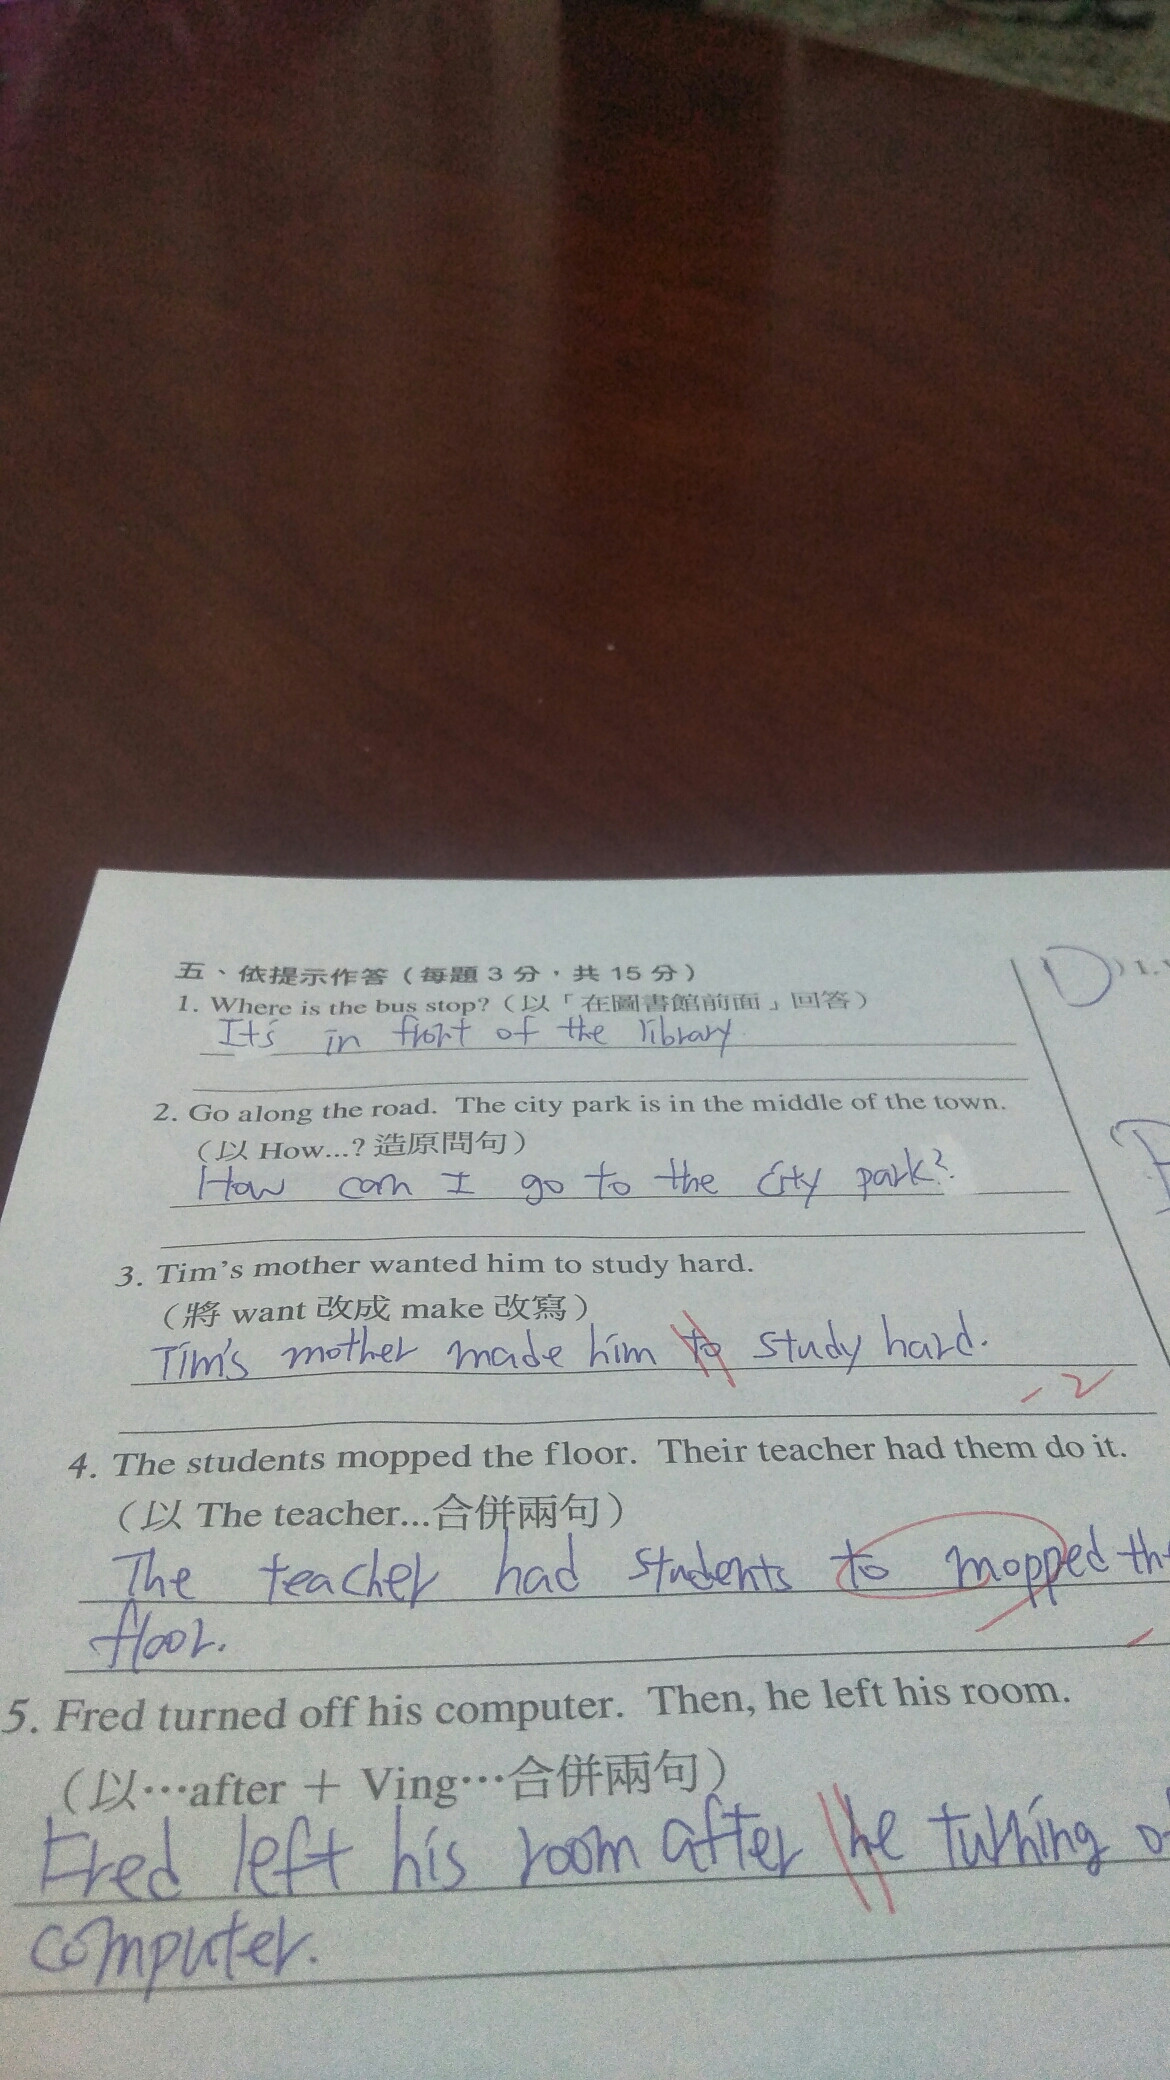 五、依提示作答（每題 3 分，共 15 分）
1. Where is the bus stop?（以「在圖書館前面」回答）
It's in front of the library.
2. Go along the road. The city park is in the middle of the town.
（以 How...? 造原問句）
How can I go to the city park?
3. Tim's mother wanted him to study hard.
（將 want 改成 make 改寫）
Tim's mother made him to study hard.
-2
4. The students mopped the floor. Their teacher had them do it.
（以 The teacher...合併兩句）
The teacher had students to mopped th
floor.
5. Fred turned off his computer. Then, he left his room.
（以…after + Ving…合併兩句）
Fred left his room after he turning of
computer.
D ) 1.